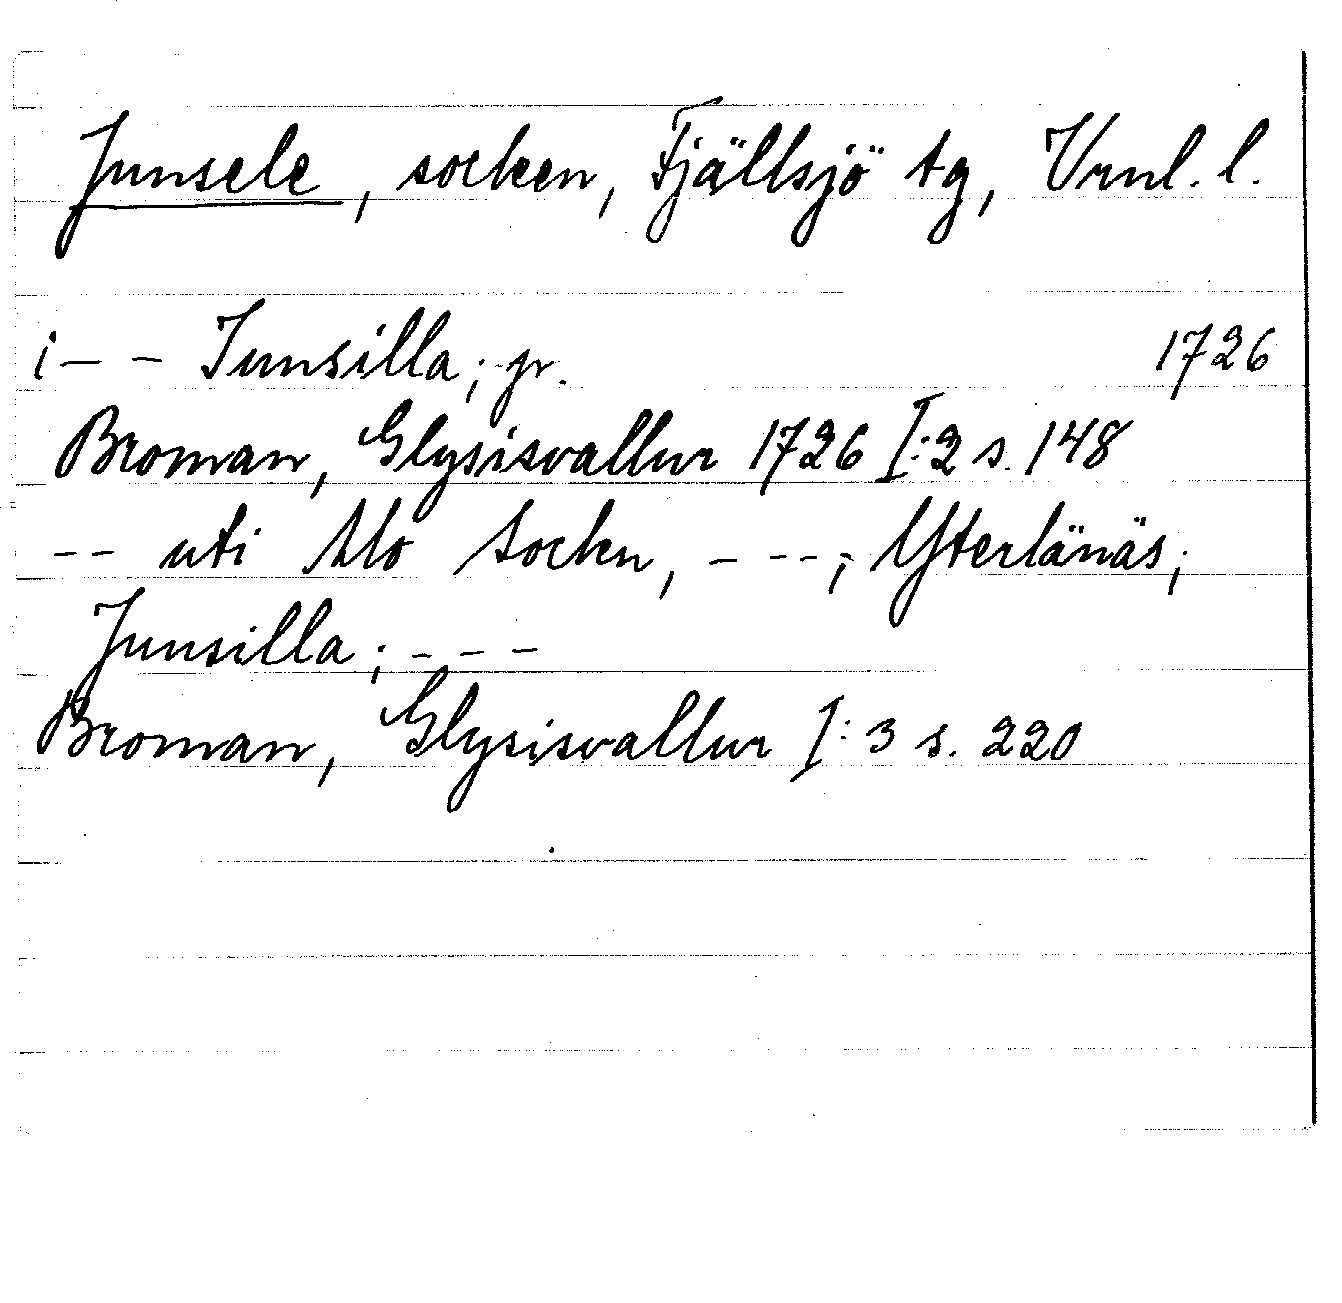 Junsele, socken, Fjällsjö tg, Vrnl. l.
i – – Junsilla; pr. 1726
Broman, Glysisvallur 1726 I:2 s. 148
-- uti Mo Sockn, - ---; Ytterlänäs;
Junsilla; - - -
Broman, Glysisvallur I:3 s. 220